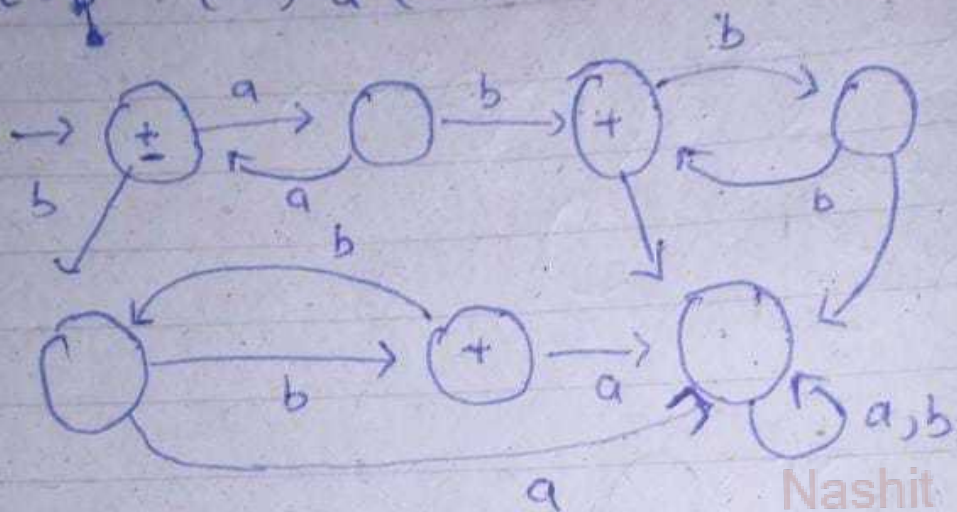 b
a
b
±
+
a
b
b
b
b
+
a
a, b
a
Nashit